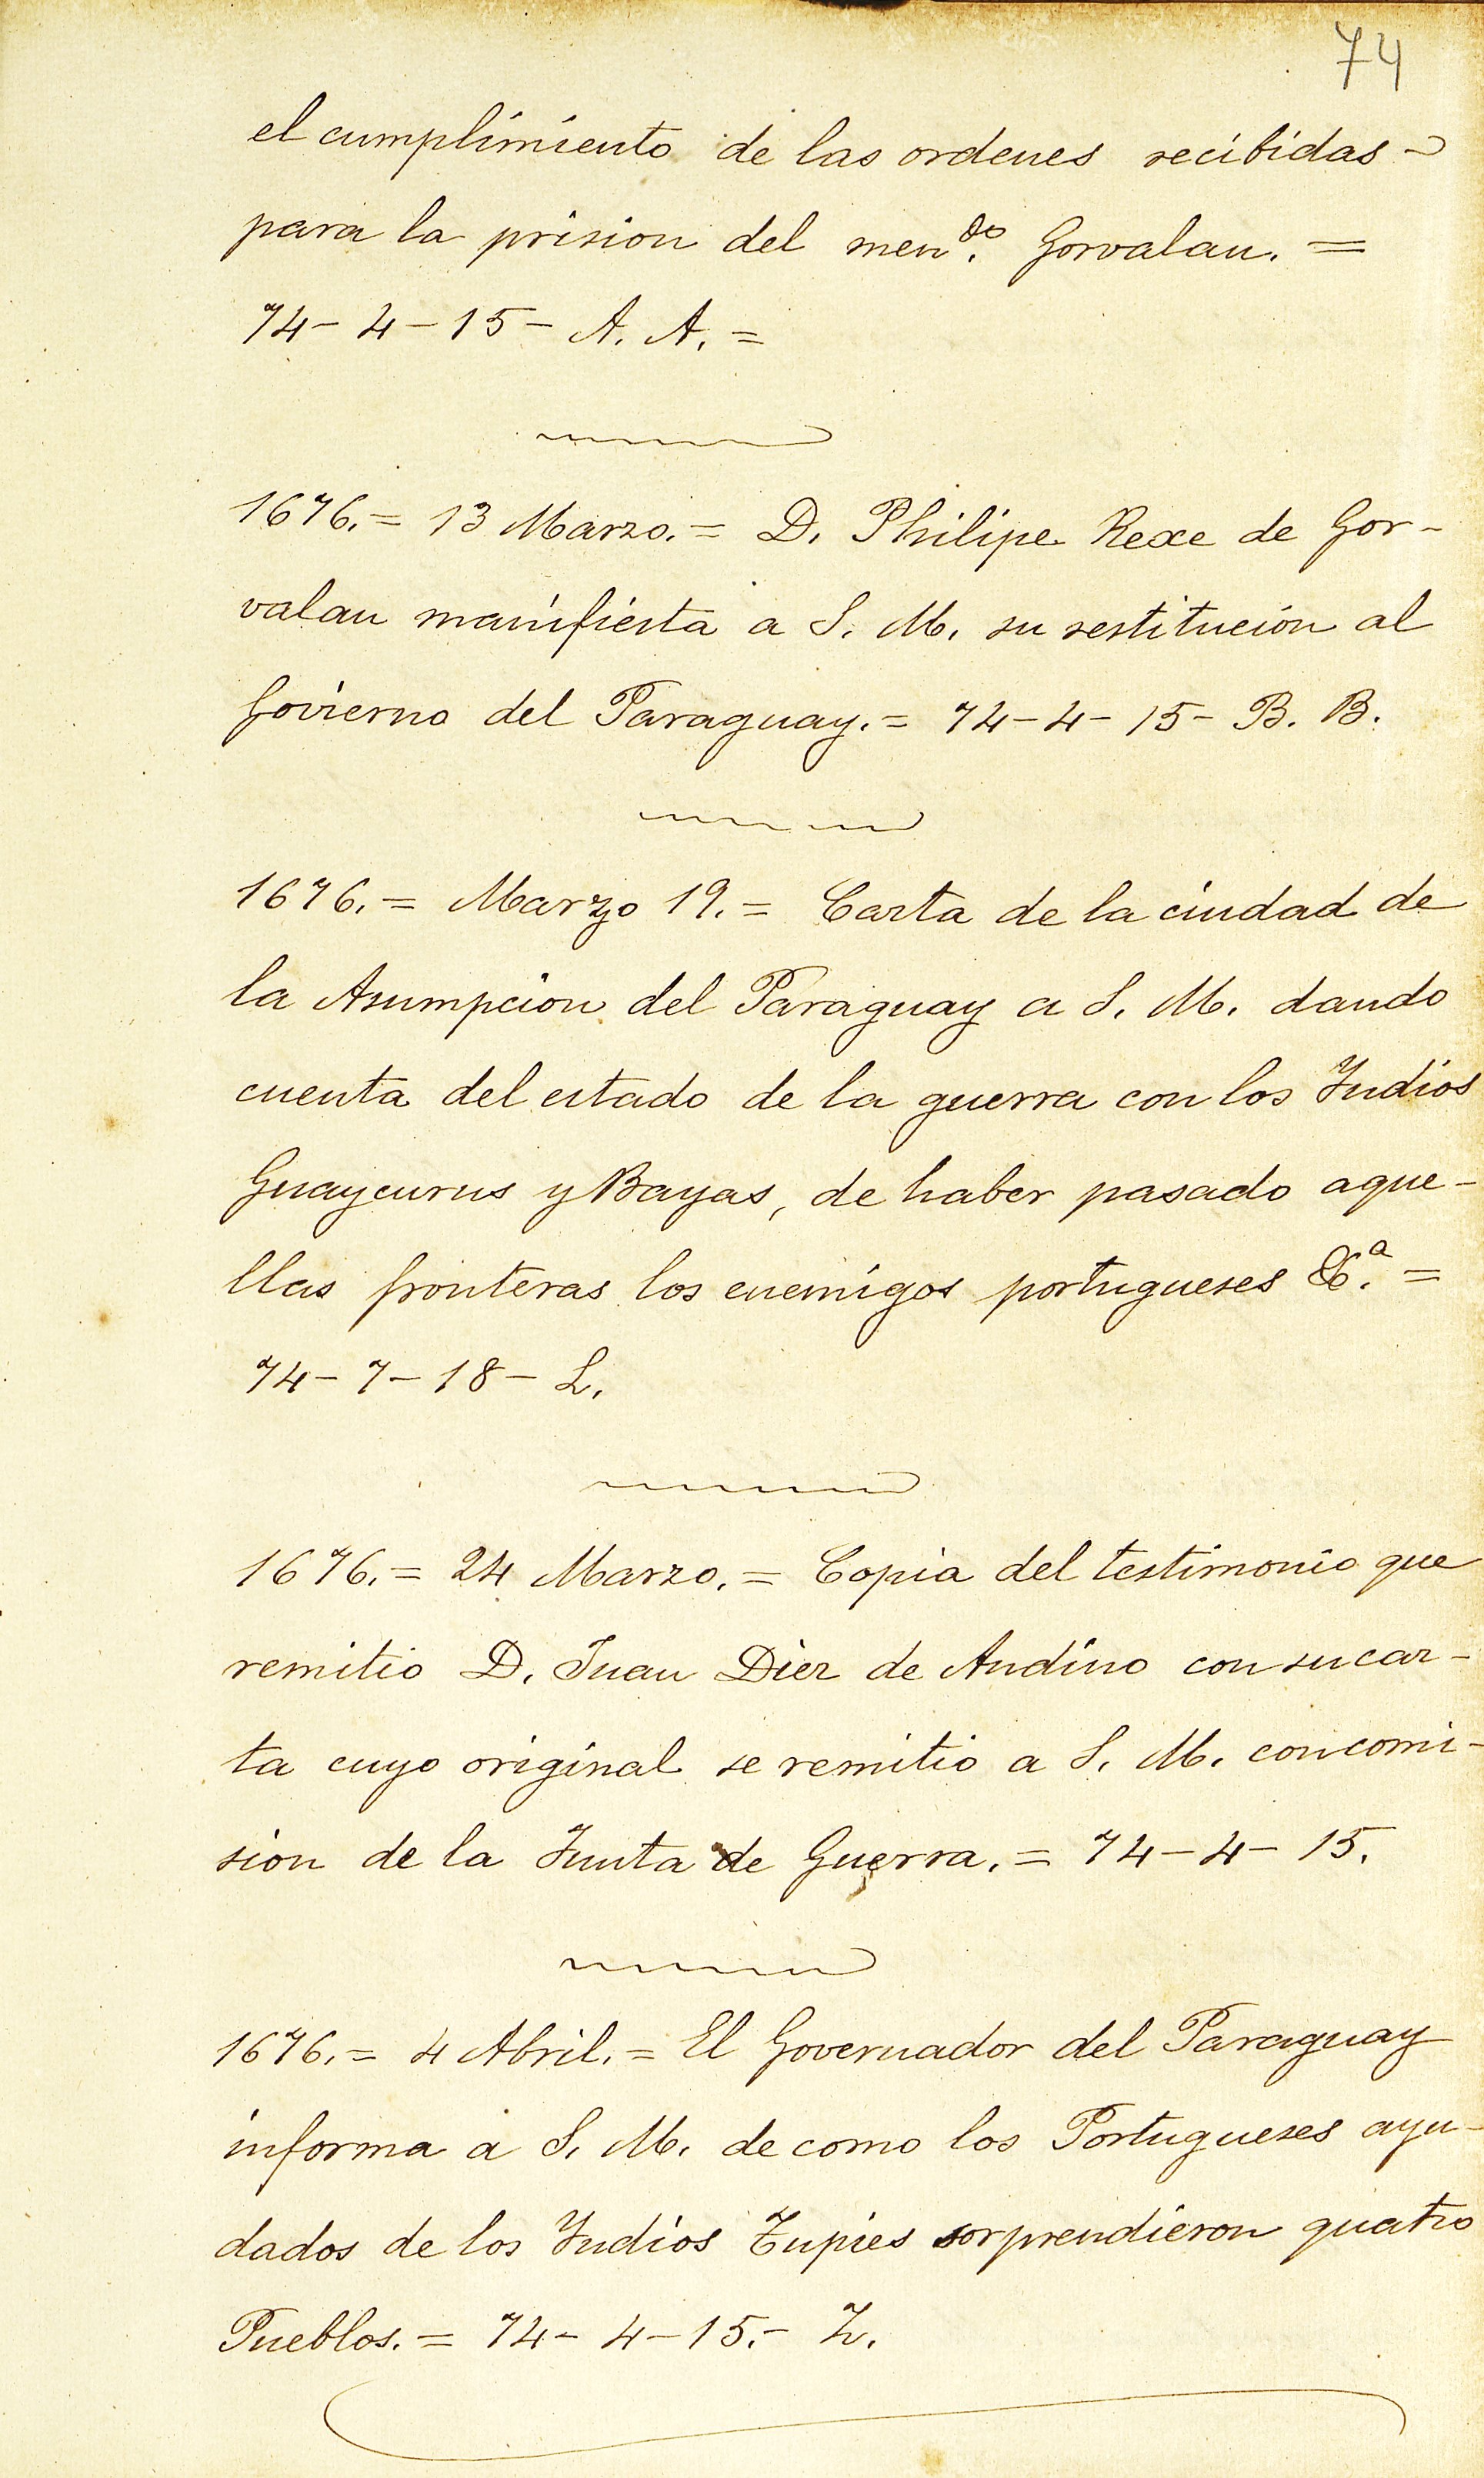 74
el cumplimiento de las ordenes recibidas -
para la prision del men.do Gorvalan. =
74 - 4 - 15 - A. A. =
1676. = 13 Marzo. = D. Philipe Rexe de Gor-
valan manifiesta a S. M. su restitución al
Govierno del Paraguay. = 74 - 4 - 15 - B. B.
1676. = Marzo 19. = Carta de la ciudad de
la Asumpcion del Paraguay a S. M. dando
cuenta del estado de la guerra con los Indios
Guaycurus y Bayas, de haber pasado aque-
llas fronteras los enemigos portugueses &.a =
74 - 7 - 18 - L.
1676. = 24 Marzo. = Copia del testimonio que
remitio D. Juan Diez de Andino con su car-
ta cuyo original se remitio a S. M. con comi-
sion de la Junta de Guerra. = 74 - 4 - 15.
1676. = 4 Abril. = El Governador del Paraguay
informa a S. M. de como los Portugueses ayu-
dados de los Indios Tupies sorprendieron quatro
Pueblos. = 74 - 4 - 15. - Z.